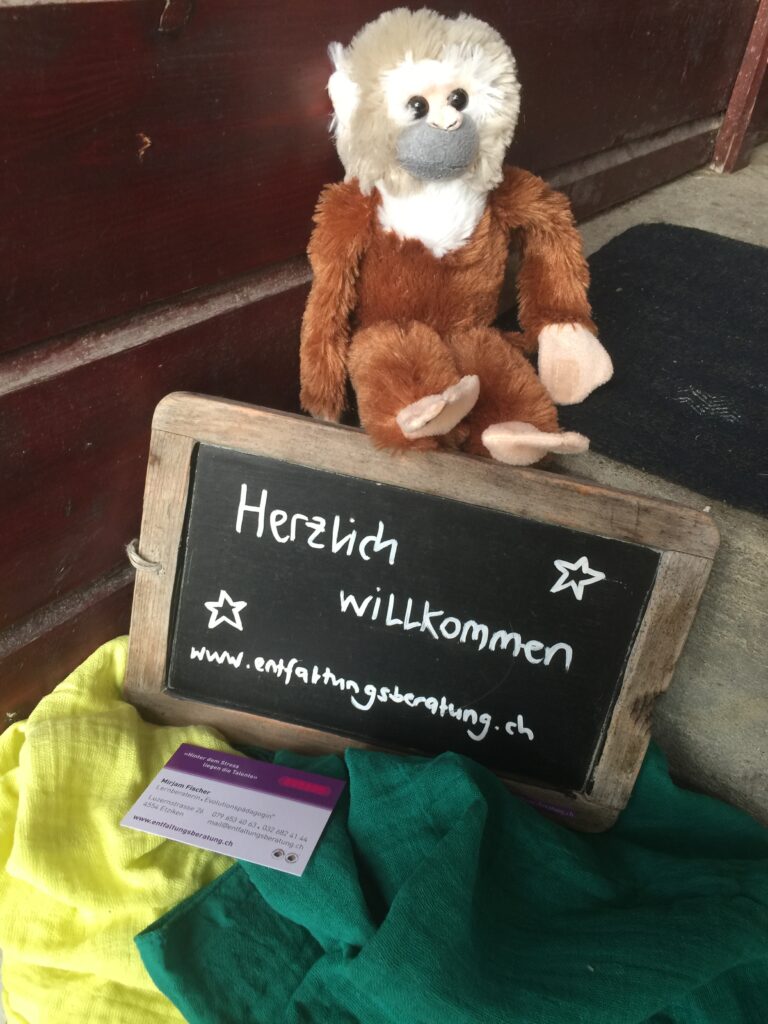 Herzlich
willkommen
www.entfaltungsberatung.ch
«Hinter dem Stress
liegen die Talente»
Mirjam Fischer
Lernberaterin, Evolutionspädagogin®
Luzernstrasse 26 079 653 40 63, 032 682 41 44
4554 Etziken mail@entfaltungsberatung.ch
www.entfaltungsberatung.ch